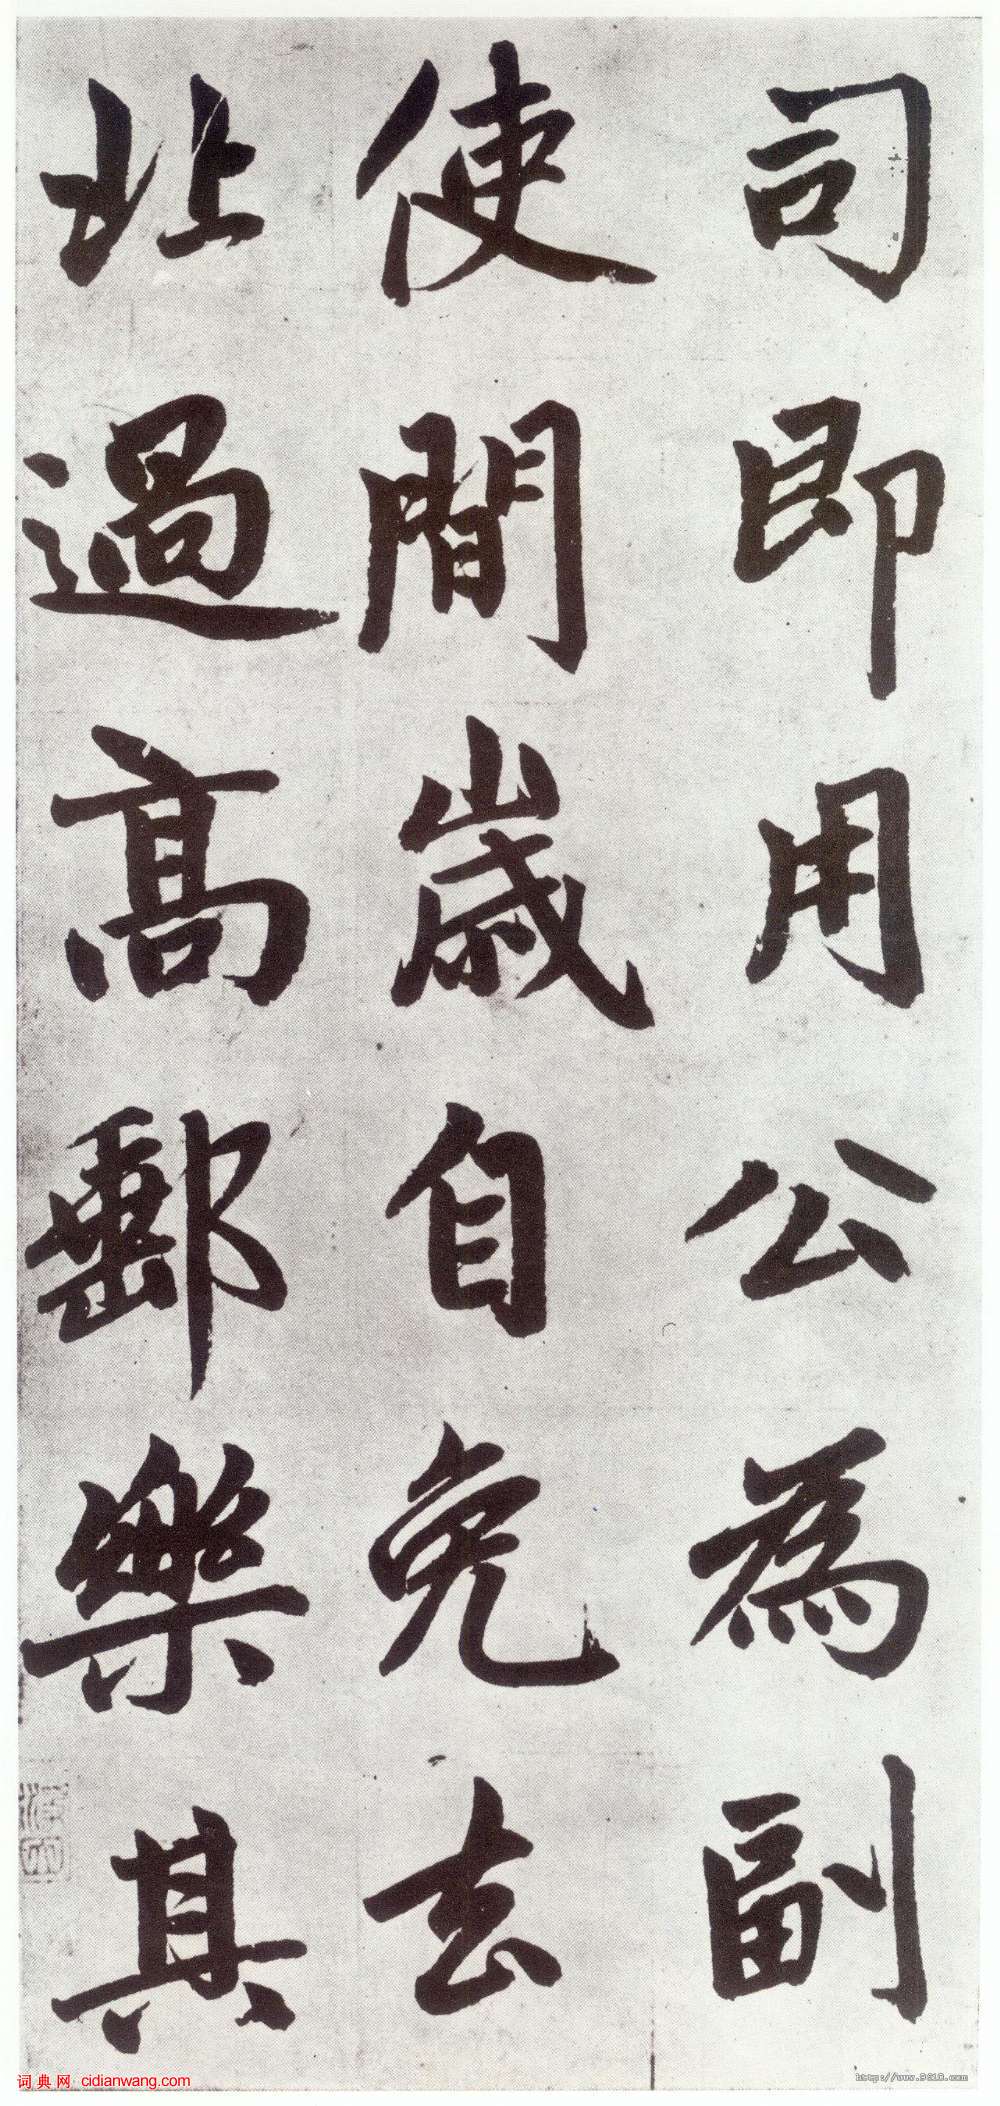 司即用公為副
使間歲自免去
北過高郵樂其
词典网 cidianwang.com
http://www.9610.com